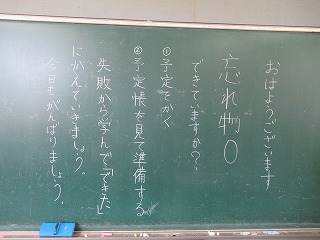 おはようございます
忘れ物0
できていますか?
①予定をかく
②予定帳を見て準備する
失敗から学んで「できた」
にかえていきましょう。
今日もがんばりましょう。